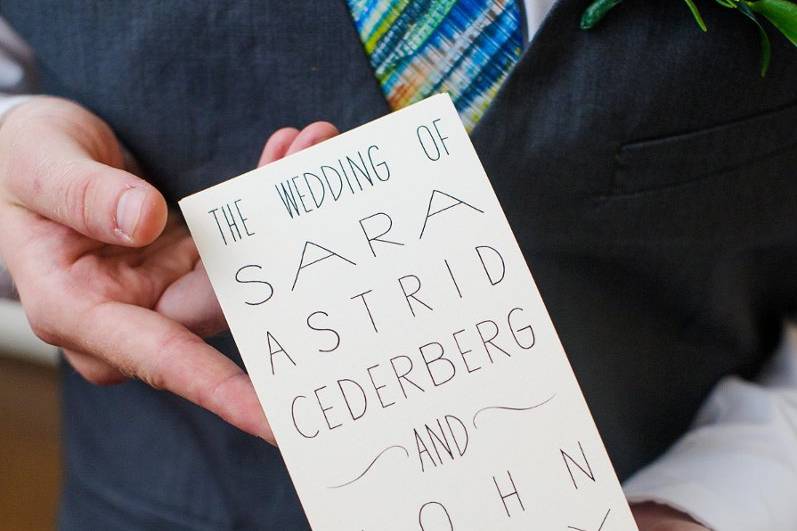 THE WEDDING OF
SARA
ASTRID
CEDERBERG
AND
OHN